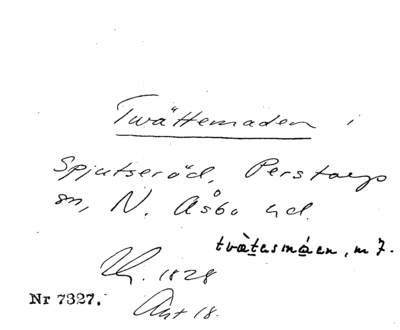 Twättemaden i
Spjutseröd, Perstorps
sn, N. Åsbo hd.
tvätesmáen, m 7.
1828
Nr 7327.
Akt 18.